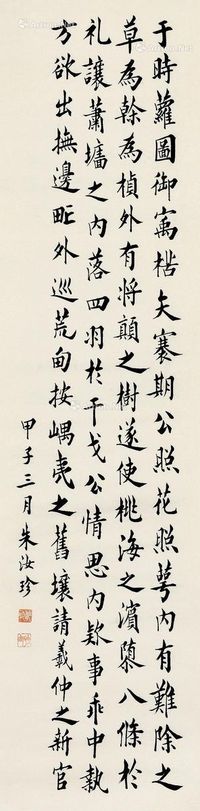 于時蘿圖御寓楛矢褰期公照花照萼內有難除之
草為榦為楨外有將顛之樹遂使桃海之濱隳八條於
禮讓蕭墻之內落四羽於干戈公情思內款事乖中執
方欲出撫邊甿外巡荒甸按嵎夷之舊壤請羲仲之新官
甲子三月朱汝珍